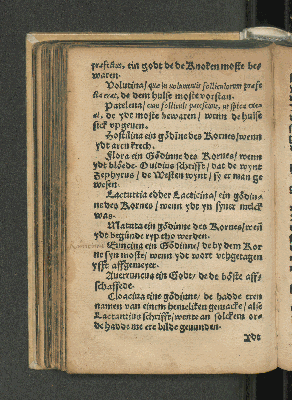 præfectus, ein godt de de Knoken moste be-
waren.
Volutina / que in volumentis folliculorum præfe
cta erat, de dem hulse moste vorstan.
Patelena / cum folliculi patescunt, ut spica exe-
at, de ydt moste bewaren / wenn de hulse
sick vpgeuen.
Hostilina ein gödinne des Kornes / wenn
ydt aren krech.
Flora ein Gödinne des Kornes / wenn
ydt blöede. Ouidius schrifft / dat de wynt
Zephyrus / de Westen wynt / sy er man ge
wesen.
Lacturtia edder Lacticina / ein gödin-
ne des Kornes / wenn ydt yn syner melck
was.
Matuta ein gödinne des Kornes / weñ
ydt begünde ryp tho werden.
Runcina ein Gödinne / de by dem Kor
ne syn moste / wenn ydt wort vpgetagen
yfft affgemeyet.
Auerruncus ein Godt / de dt böste aff-
schaffede.
Cloacina eine gödinne / de hadde eren
namen van einem hemeliken gemacke / alse
Lactantius schrifft / wente an solcken or-
de hadde me ere bilde geuunden.
Ydt